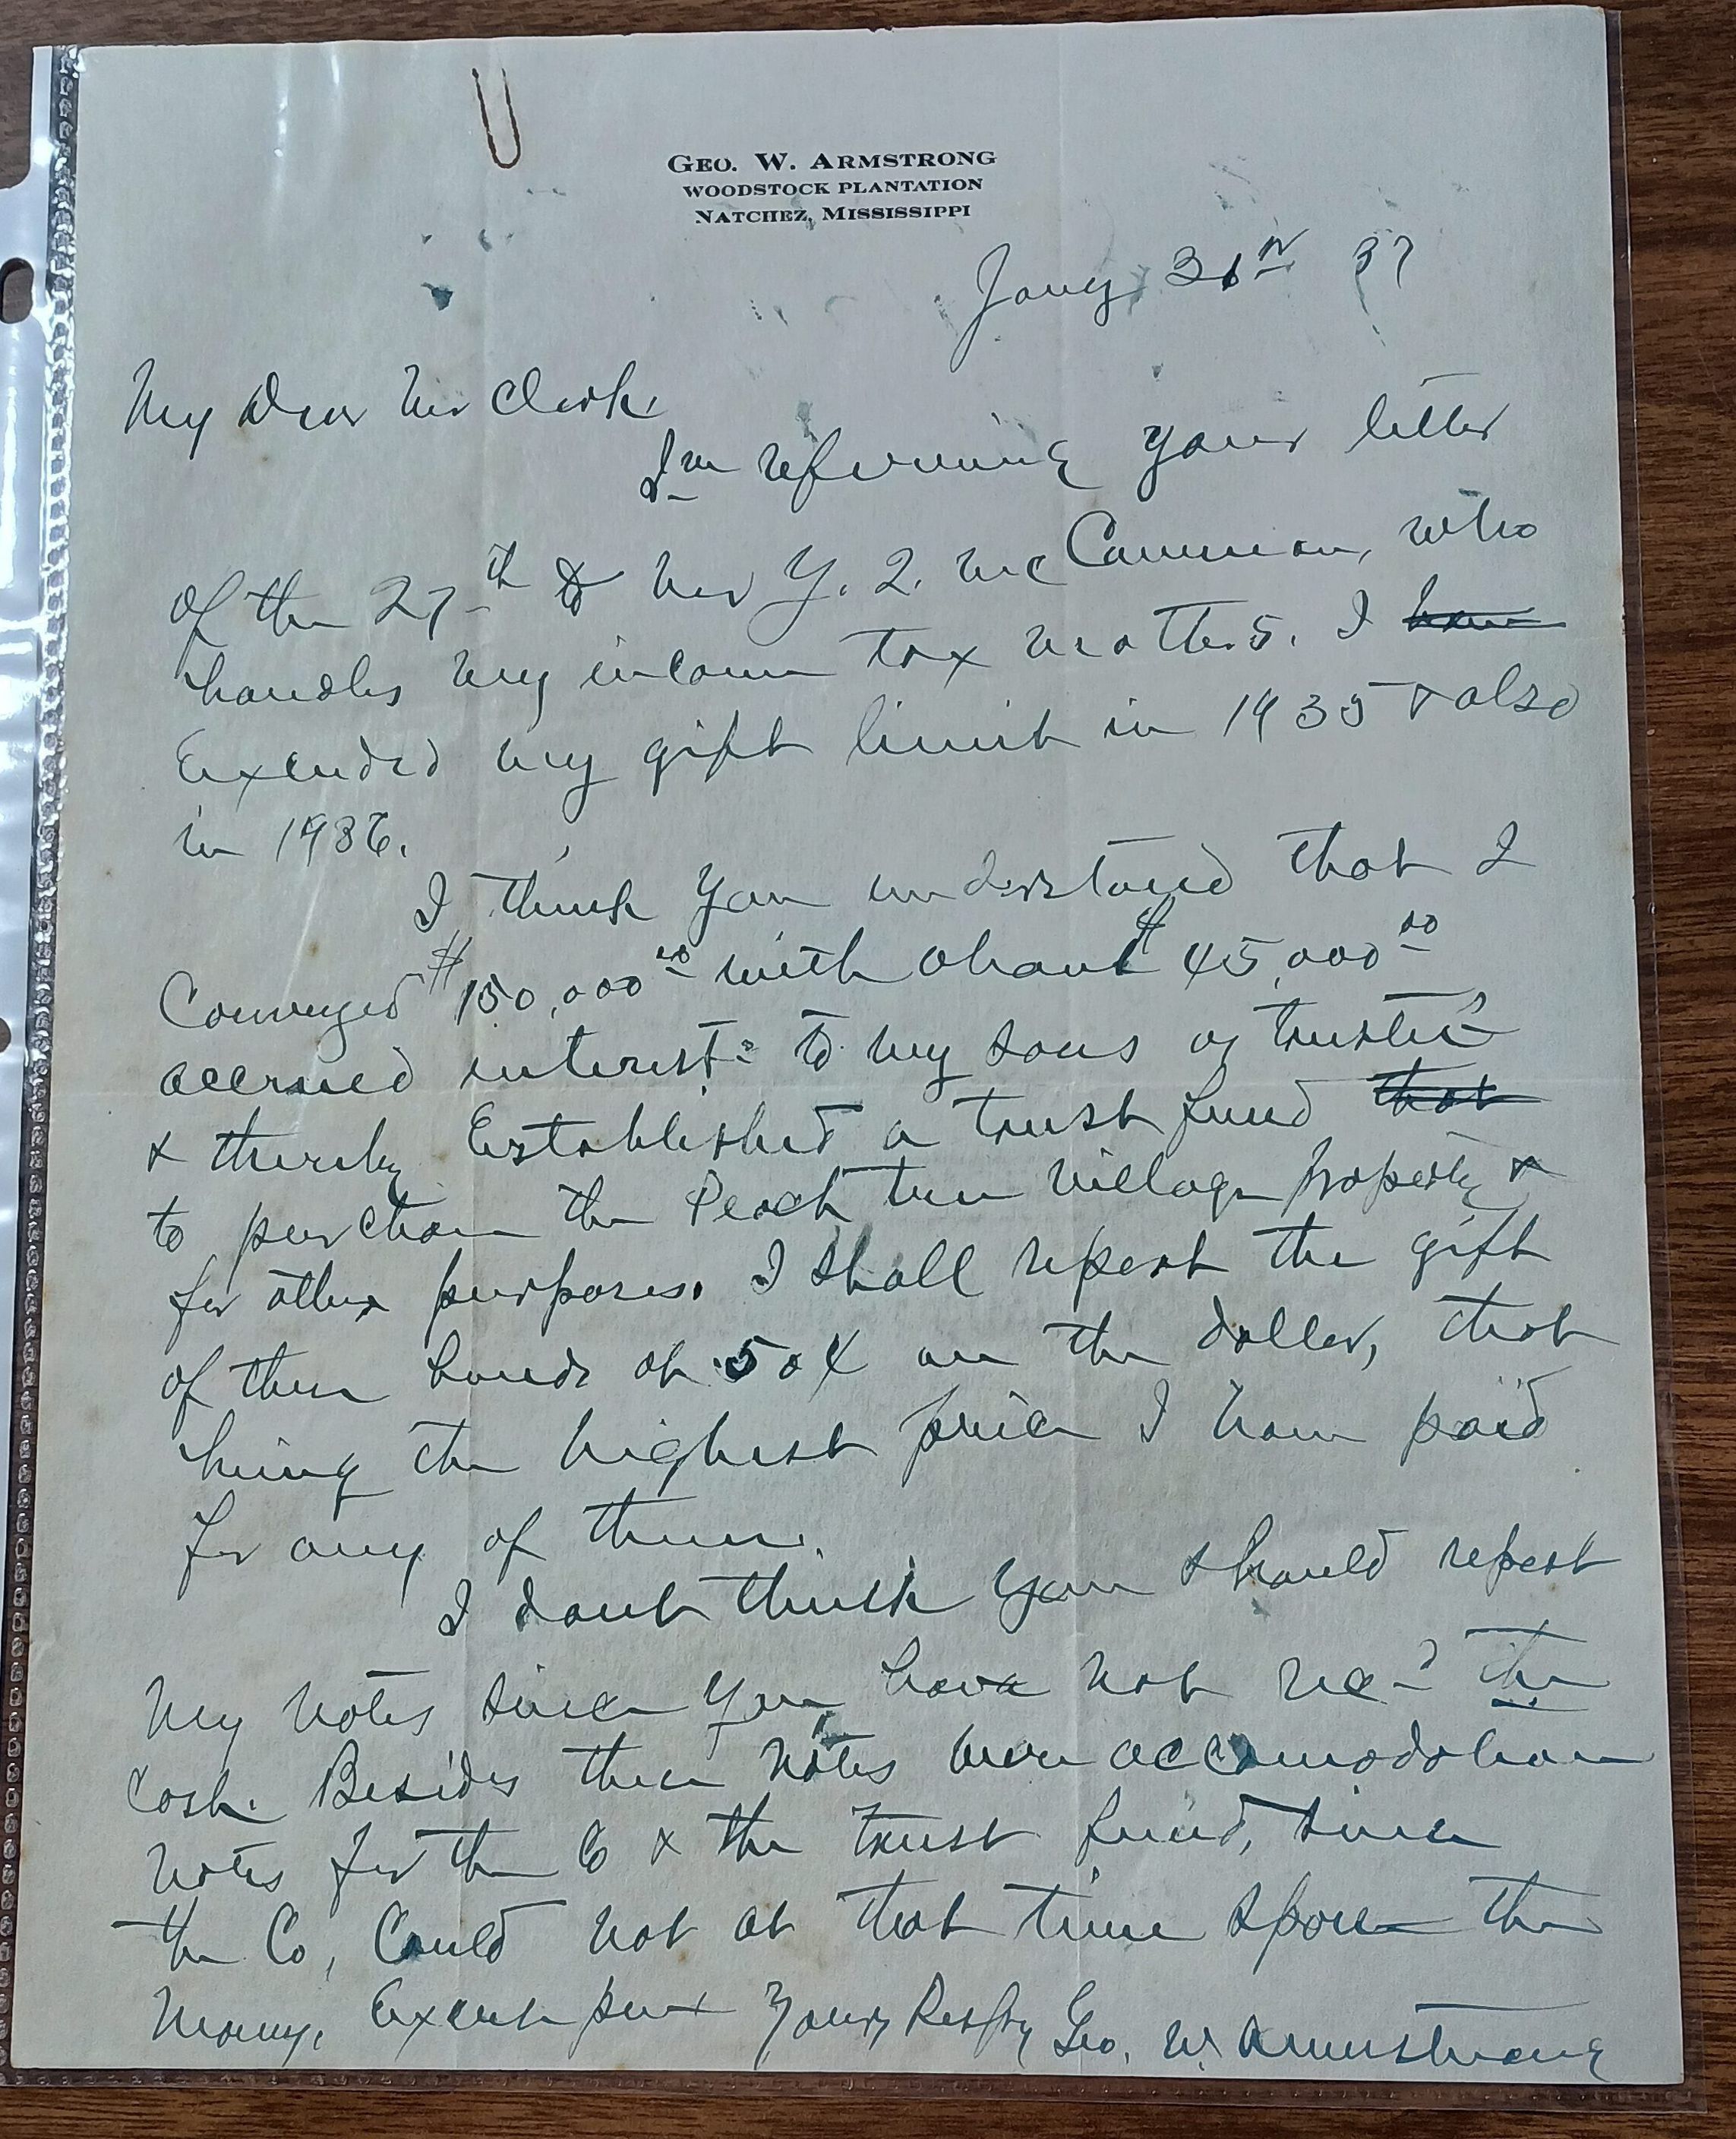 GEO. W. ARMSTRONG
WOODSTOCK PLANTATION
NATCHEZ, MISSISSIPPI
Jany 37
My Dear Mr Clark,
I'm referring your letter
of the 27th to Mr Y. Q. McCammon, who
handles my income tax matters. I have
Exceeded my gift limit in 1935 & also
in 1936.
I think you understand that I
Conveyed $150,000.00 with about $45,000.00
accrued interest to my sons as trustees
& thereby Established a trust fund that
to purchase the Peach tree village property &
for other purposes. I shall report the gift
of these bonds at 50¢ on the dollar, that
being the highest price I have paid
for any of them.
I dont think you should report
My notes since you have not recd the
Cash. Besides these notes were accomodation
notes for the Co & the trust fund, since
the Co, Could not at that time spare the
Money. Yours Respy Geo. W. Armstrong